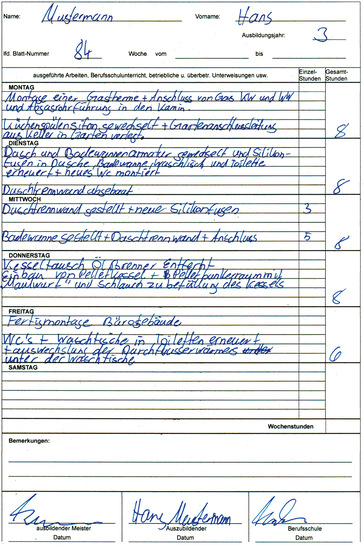 Name: Mustermann Vorname: Hans
Ausbildungsjahr: 3
lfd. Blatt-Nummer 84 Woche vom bis
ausgeführte Arbeiten, Berufsschulunterricht, betriebliche u. überbetr. Unterweisungen usw. Einzel-Stunden Gesamt-Stunden
MONTAG
Montage einer Gastherme + Anschluss von Gas KW und WW
und Abgasrohrführung in den Kamin.
Küchenspülensifon gewechselt + Gartenanschlussleitung
aus Keller in Garten verlegt 8
DIENSTAG
Dusch und Badewannenarmatur gewechselt und Silikon-
fugen in Dusche, Badewanne, Waschtisch und Toilette
erneuert + neues Wc montiert
Duschtrennwand abgebaut 8
MITTWOCH
Duschtrennwand gestellt + neue Silikonfugen 3
Badewanne gestellt + Duschtrennwand + Anschluss 5 8
DONNERSTAG
Kesseltausch Ölbrenner Entfernt
Einbau von Pelletkessel + Pelletbunkerraum mit
"Maulwurf" und Schlauch zu befüllung des Kessels
8
FREITAG
Fertigmontage Bürogebäude
Wc's + Waschtische in Toiletten erneuert
+ auswechslung der Durchflusserwärmers
unter der Waschtische 6
SAMSTAG
Wochenstunden
Bemerkungen:
Hans Mustermann
ausbildender Meister Auszubildender Berufsschule
Datum Datum Datum